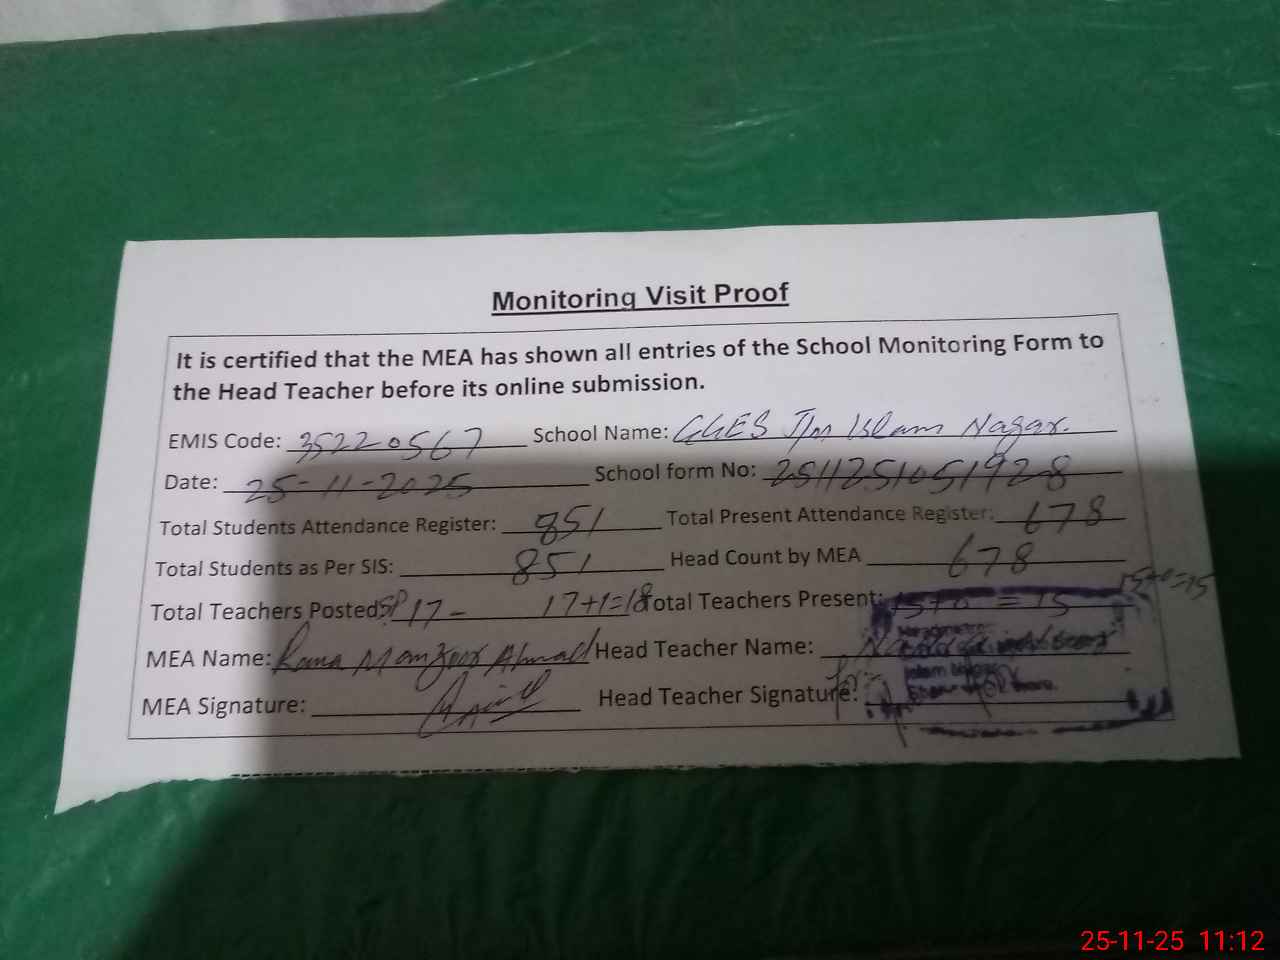 Monitoring Visit Proof
It is certified that the MEA has shown all entries of the School Monitoring Form to
the Head Teacher before its online submission.
EMIS Code: 35220567 School Name: GGES Islam Nagar.
Date: 25-11-2025 School form No: 2511251051928
Total Students Attendance Register: 851 Total Present Attendance Register: 678
Total Students as Per SIS: 851 Head Count by MEA 678
Total Teachers Posted SP 17- 17+1=18 Total Teachers Present: 15+0 = 15 15+0=15
MEA Name: Rana Manzoor Ahmad Head Teacher Name:
MEA Signature: Head Teacher Signature:
25-11-25 11:12